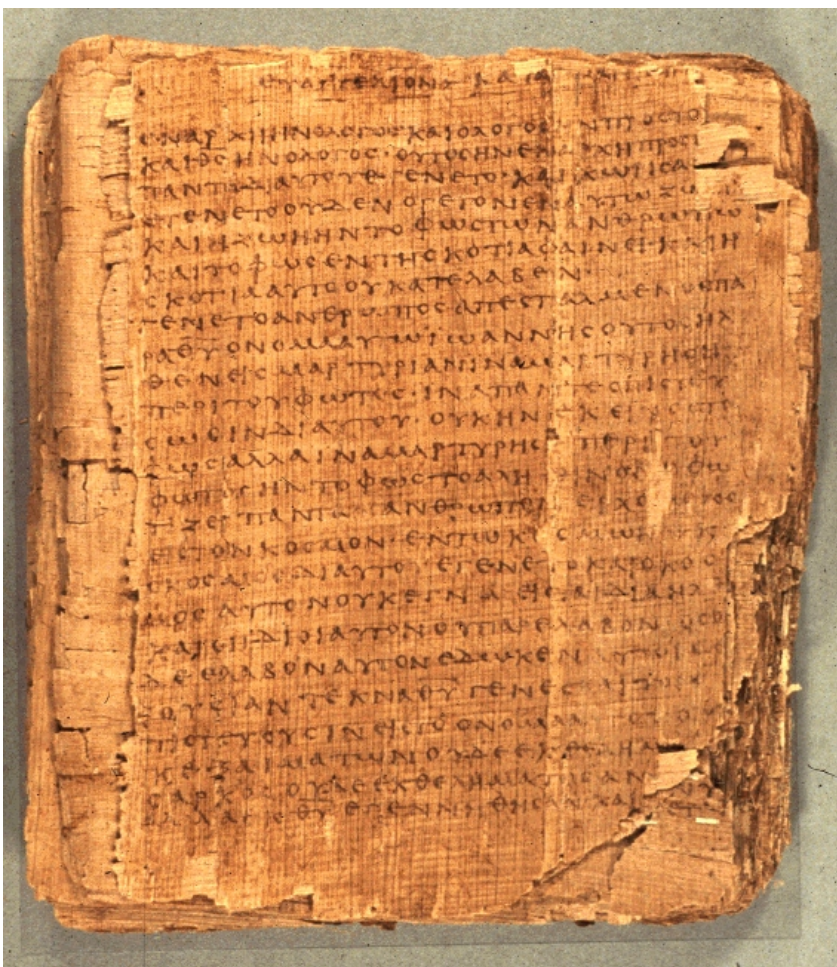 ΕΥΑΓΓΕΛΙΟΝ ΚΑΤΑ
ΕΝ ΑΡΧΗ ΗΝ Ο ΛΟΓΟϹ ΚΑΙ Ο ΛΟΓΟϹ ΗΝ ΠΡΟϹ ΤΟ
ΚΑΙ ΘϹ ΗΝ Ο ΛΟΓΟϹ · ΟΥΤΟϹ ΗΝ ΕΝ ΑΡΧΗ ΠΡΟϹ
ΠΑΝΤΑ ΔΙ ΑΥΤΟΥ ΕΓΕΝΕΤΟ · ΚΑΙ ΧΩΡΙϹ Α
ΕΓΕΝΕΤΟ ΟΥΔΕΝ Ο ΓΕΓΟΝΕΝ ΕΝ ΑΥΤΩ ΖΩ
ΚΑΙ Η ΖΩΗ ΗΝ ΤΟ ΦΩϹ ΤΩΝ ΑΝΘΡΩΠΩ
ΚΑΙ ΤΟ ΦΩϹ ΕΝ ΤΗ ϹΚΟΤΙΑ ΦΑΙΝΕΙ · ΚΑΙ Η
ϹΚΟΤΙΑ ΑΥΤΟ ΟΥ ΚΑΤΕΛΑΒΕΝ ·
ΕΓΕΝΕΤΟ ΑΝΘΡΩΠΟϹ ΑΠΕϹΤΑΛΜΕΝΟϹ ΠΑ
ΡΑ ΘΥ ΟΝΟΜΑ ΑΥΤΩ ΙΩΑΝΝΗϹ ΟΥΤΟϹ ΗΛ
ΘΕΝ ΕΙϹ ΜΑΡΤΥΡΙΑΝ ΙΝΑ ΜΑΡΤΥΡΗϹΗ
ΠΕΡΙ ΤΟΥ ΦΩΤΟϹ · ΙΝΑ ΠΑΝΤΕϹ ΠΙϹΤΕΥ
ϹΩϹΙΝ ΔΙ ΑΥΤΟΥ · ΟΥΚ ΗΝ ΕΚΕΙΝΟϹ ΤΟ
ΦΩϹ ΑΛΛΑ ΙΝΑ ΜΑΡΤΥΡΗϹΗ ΠΕΡΙ ΤΟΥ
ΦΩΤΟϹ ΗΝ ΤΟ ΦΩϹ ΤΟ ΑΛΗΘΙΝΟΝ Ο ΦΩ
ΤΙΖΕΙ ΠΑΝΤΑ ΑΝΘΡΩΠΟΝ ΕΡΧΟΜΕΝΟΝ
ΕΙϹ ΤΟΝ ΚΟϹΜΟΝ · ΕΝ ΤΩ ΚΟϹΜΩ ΗΝ
ΚΟϹΜΟϹ ΔΙ ΑΥΤΟΥ ΕΓΕΝΕΤΟ ΚΑΙ Ο ΚΟϹ
ΜΟϹ ΑΥΤΟΝ ΟΥΚ ΕΓΝΩ ΕΙϹ ΤΑ ΙΔΙΑ ΗΛ
ΚΑΙ ΟΙ ΙΔΙΟΙ ΑΥΤΟΝ ΟΥ ΠΑΡΕΛΑΒΟΝ · ΟϹΟΙ
ΔΕ ΕΛΑΒΟΝ ΑΥΤΟΝ ΕΔΩΚΕΝ ΑΥΤΟΙϹ ΕΞ
ΟΥϹΙΑΝ ΤΕΚΝΑ ΘΥ ΓΕΝΕϹΘΑΙ ΤΟΙϹ
ΠΙϹΤΕΥΟΥϹΙΝ ΕΙϹ ΤΟ ΟΝΟΜΑ ΑΥΤΟΥ ΟΙ
ΕΞ ΑΙΜΑΤΩΝ ΟΥΔΕ ΕΚ ΘΕΛΗΜΑ
ϹΑΡΚΟϹ ΟΥΔΕ ΕΚ ΘΕΛΗΜΑΤΟϹ ΑΝ
ΑΛΛΑ ΕΚ ΘΥ ΕΓΕΝΝΗΘΗϹΑΝ ΚΑΙ